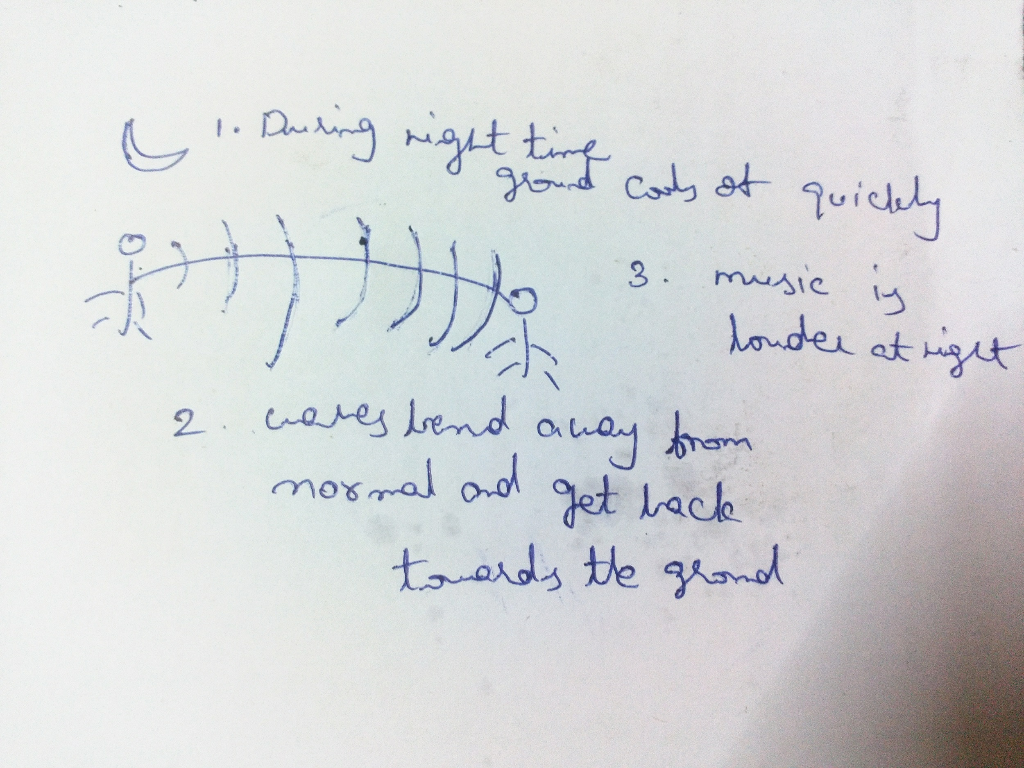 1. During night time
ground cools off quickly
3. music is
louder at night
2. waves bend away from
normal and get back
towards the ground